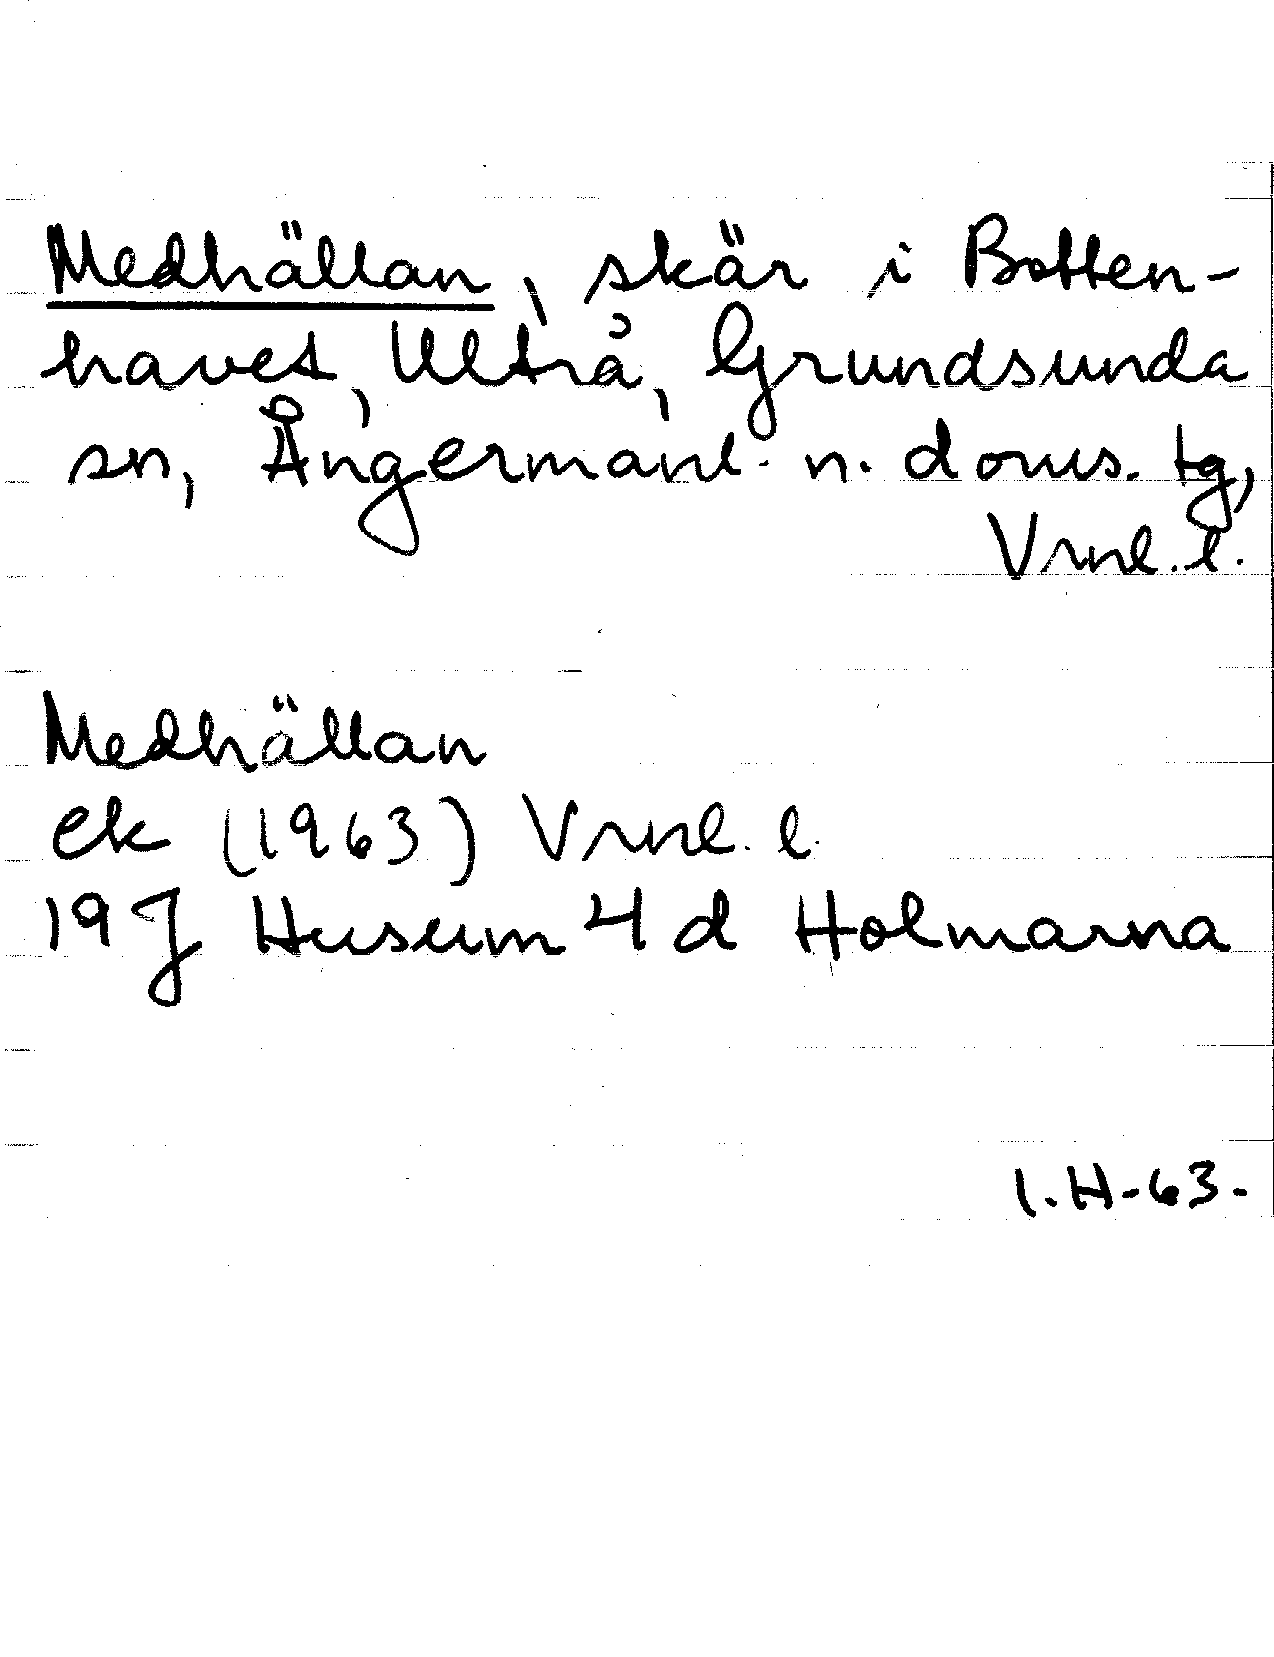 Medhällan, skär i Botten-
havet, Ultrå, Grundsunda
sn, Ångermanl. n. doms. tg,
Vrnl. l.
Medhällan
ek (1963) Vrnl. l.
19 J Husum 4 d Holmarna
I.H-63.